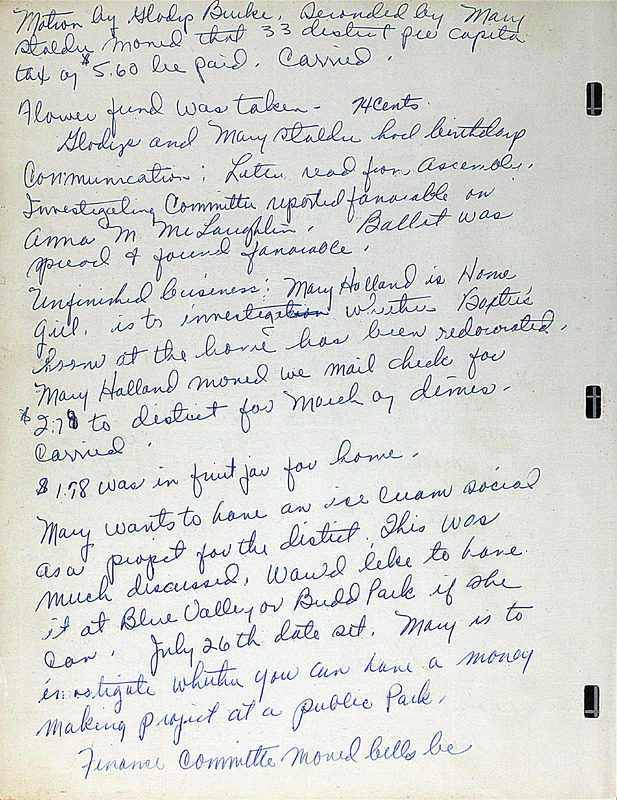 Motion by Gladys Burke, Seconded by Mary
Stalder moved that 33 district per capita
tax of $5.60 be paid. Carried.
Flower fund was taken - 74 cents.
Gladys and Mary Stalder had birthdays
Communication: Letter read from Assembly.
Investigating Committee reported favorable on
Anna M McLaughlin. Ballot was
spread & found favorable.
Unfinished business: Mary Holland is Home
Girl, is to investigation whether Baxter's
room at the home has been redecorated.
Mary Holland moved we mail check for
$2.78 to district for March of dimes.
Carried.
$1.78 was in fruit jar for home.
Mary wants to have an ice cream social
as a project for the district. This was
much discussed. Would like to have
it at Blue Valley or Budd Park if she
can. July 26th date set. Mary is to
investigate whether you can have a money
making project at a public Park.
Finance Committee moved bills be